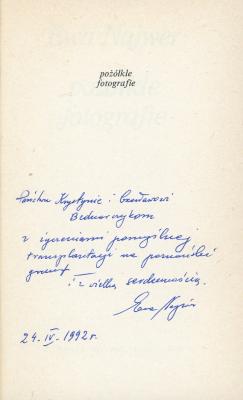 pożółkle
fotografie
Państwu Krystynie i Czesławowi
Bednarczykom
z życzeniami pomyślnej
transplantacji na poznański
grunt
i z wielką serdecznością.
Ewa Najwer
24. IV. 1992 r.